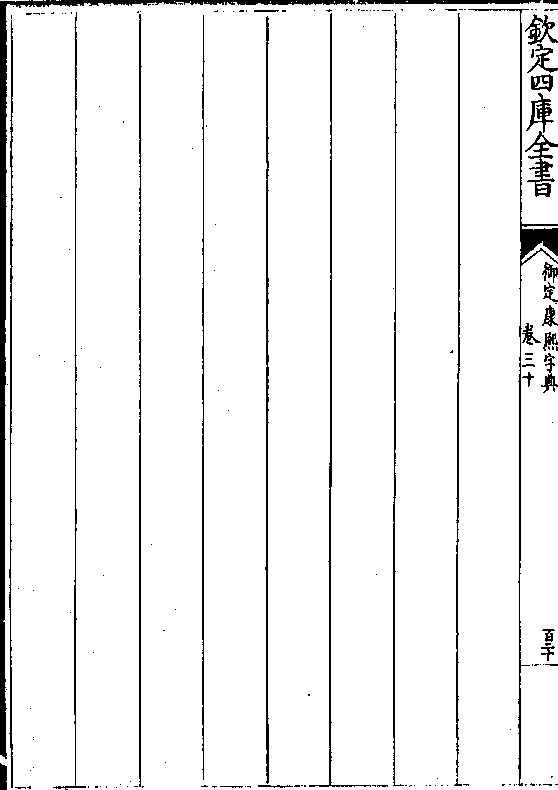 欽定四庫全書
御定康熙字典
卷三十
百二十